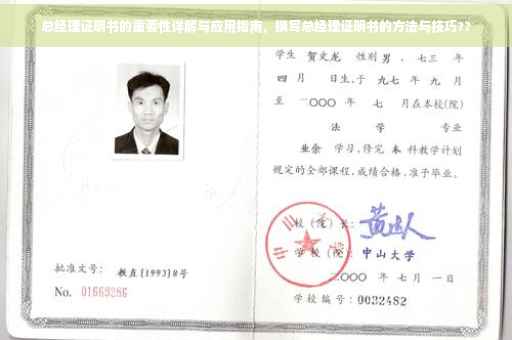 总经理证明书的重要性详解与应用指南，撰写总经理证明书的方法与技巧??
学生 贺文龙 性别 男，七三 年
四 月 日生，于 九七 年 九 月
至 二〇〇〇 年 七 月在本校(院)
法 学 专业
业余 学习，修完 本 科教学计划
规定的全部课程，成绩合格，准予毕业。
校（院）长：
学 校（院）：中山大学
二〇〇〇 年 七 月 一 日
学校编号：0032482
批准文号：教直[1993]8号
No. 01669286